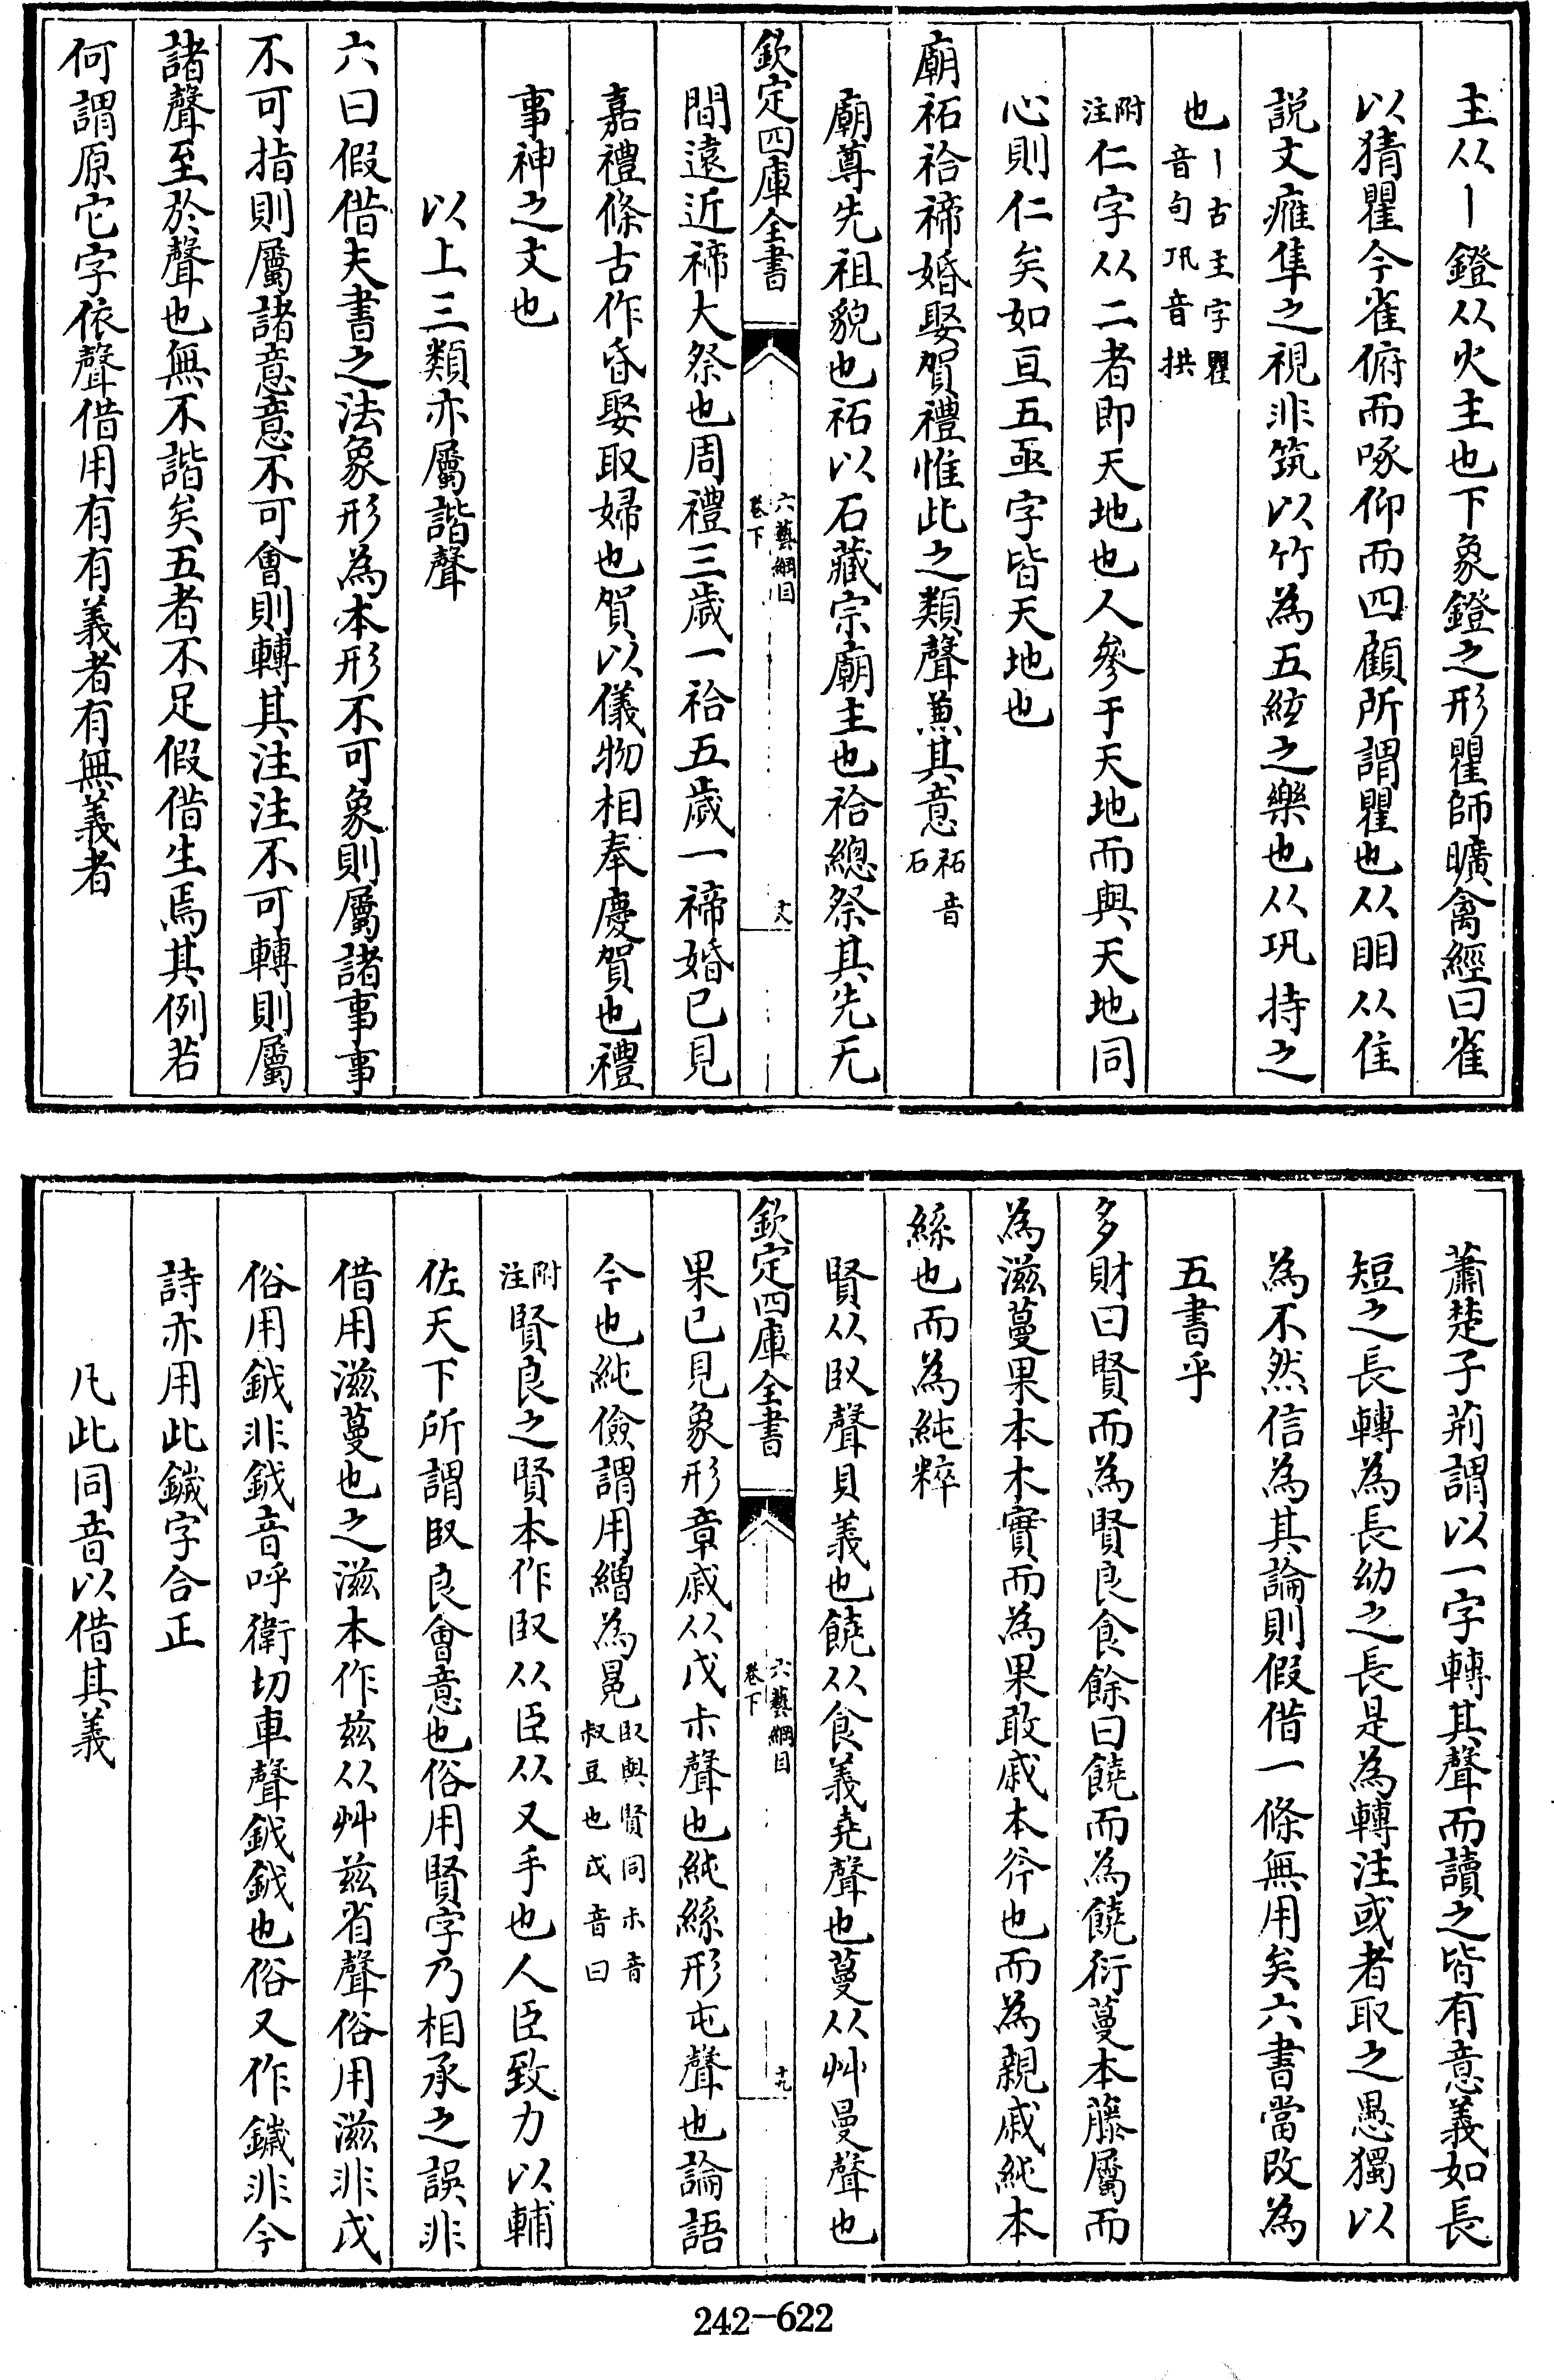 主从丨鐙从火主也下象鐙之形瞿師曠禽經曰雀
以猜瞿今雀俯而啄仰而四顧所謂瞿也从䀠从隹
説文㢈隼之視非筑以竹為五絃之樂也从巩持之
也丨古主字瞿音句巩音拱
附注仁字从二者即天地也人參于天地而與天地同
心則仁矣如亘五亟字皆天地也
廟祏祫禘婚娶賀禮惟此之類聲兼其意祏音石
廟尊先祖貌也祏以石藏宗廟主也祫總祭其先无
欽定四庫全書
六藝綱目
卷下
十八
間遠近禘大祭也周禮三歳一祫五歳一禘婚已見
嘉禮條古作昏娶取婦也賀以儀物相奉慶賀也禮
事神之文也
以上三類亦屬諧聲
六曰假借夫書之法象形為本形不可象則屬諸事事
不可指則屬諸意意不可會則轉其注注不可轉則屬
諸聲至於聲也無不諧矣五者不足假借生焉其例若
何謂原它字依聲借用有有義者有無義者
蕭楚子荊謂以一字轉其聲而讀之皆有意義如長
短之長轉為長幼之長是為轉注或者取之愚獨以
為不然信為其論則假借一條無用矣六書當改為
五書乎
多財曰賢而為賢良食餘曰饒而為饒衍蔓本藤屬而
為滋蔓果本木實而為果敢戚本斧也而為親戚純本
絲也而為純粹
賢从臤聲貝義也饒从食義堯聲也蔓从艸曼聲也
欽定四庫全書
六藝綱目
卷下
十九
果已見象形章戚从戉尗聲也純絲形屯聲也論語
今也純儉謂用繒為冕臤與賢同尗音叔豆也戉音曰
附注賢良之賢本作臤从臣从又手也人臣致力以輔
佐天下所謂臤良會意也俗用賢字乃相承之誤非
借用滋蔓也之滋本作兹从艸兹省聲俗用滋非戉
俗用鉞非鉞音呼衛切車聲鉞鉞也俗又作鐬非今
詩亦用此鐬字合正
凡此同音以借其義
242-622